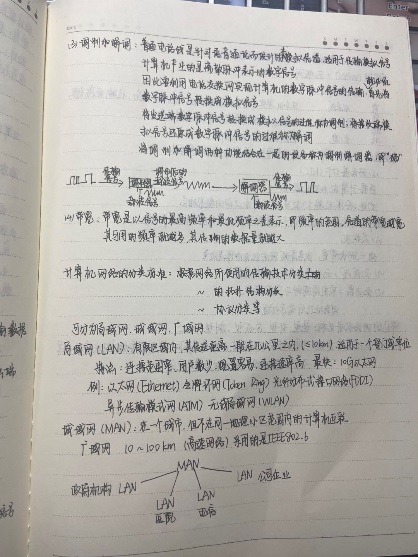 (3) 调制和解调：普通电话线是针对语音通话而设计的模拟信道，适用于传输模拟信号
计算机产生的是离散脉冲表示的数字信号
因此要利用电话交换网实现计算机的数字脉冲信号的传输，就必须
数字脉冲信号转换成模拟信号
将发送端数字脉冲信号转换成模拟信号的过程称为调制；将接收端模
拟信号还原成数字脉冲信号的过程称为解调
将调制和解调两种功能结合在一起的设备称为调制解调器
调制器
解调器
(4) 带宽：带宽是以信号的最高频率和最低频率之差表示，即频率的范围，信道的带宽越宽
其可用的频率就越多，其传输的数据量就越大
计算机网络的分类标准：根据网络所使用的传输技术分类
~ 的拓扑结构分类
~ 协议分类等
可分为局域网、城域网、广域网
局域网（LAN）：
特点：连接范围窄、用户数少、配置容易、连接速率高 最快：10G以太网
例：以太网（Ethernet）令牌环网（Token Ring）光纤分布式接口网络（FDDI）
异步传输模式网（ATM）无线局域网（WLAN）
城域网（MAN）：在一个城市，但不在同一地理小区范围内的计算机互联
广域网 10～100km（高速网络）采用的是IEEE802.6
MAN
政府机构 LAN
LAN 公司企业
LAN
LAN
医院